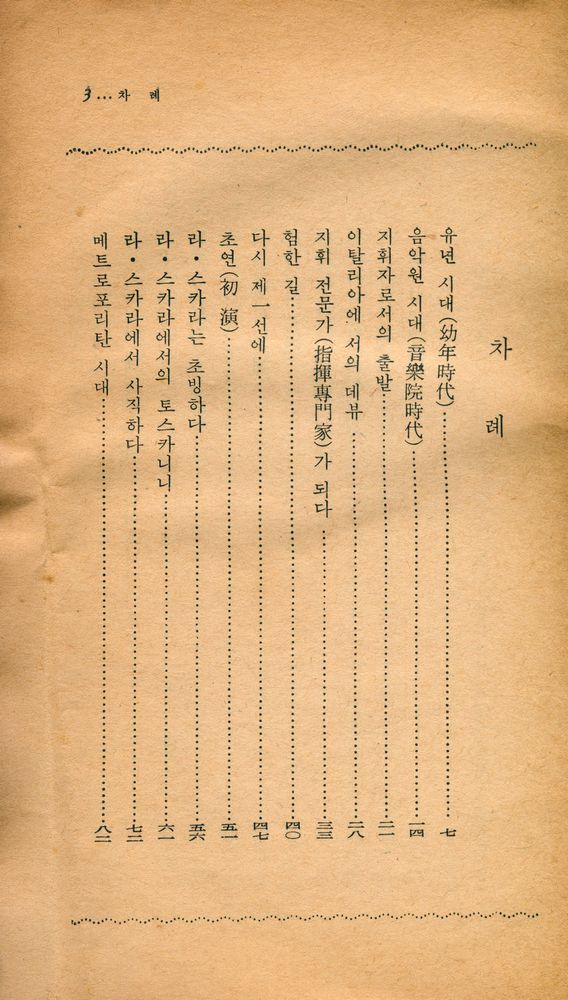 3…차 례
차 례
유년 시대(幼年時代)……七
음악원 시대(音樂院時代)……一四
지휘자로서의 출발……二一
이탈리아에 서의 데뷰……二八
지휘 전문가(指揮專門家)가 되다……三三
험한 길……四〇
다시 제一선에……四七
초연(初 演)……五一
라・스카라는 초빙하다……五六
라・스카라에서의 토스카니니……六一
라・스카라에서 사직하다……七二
메트로포리탄 시대……八二